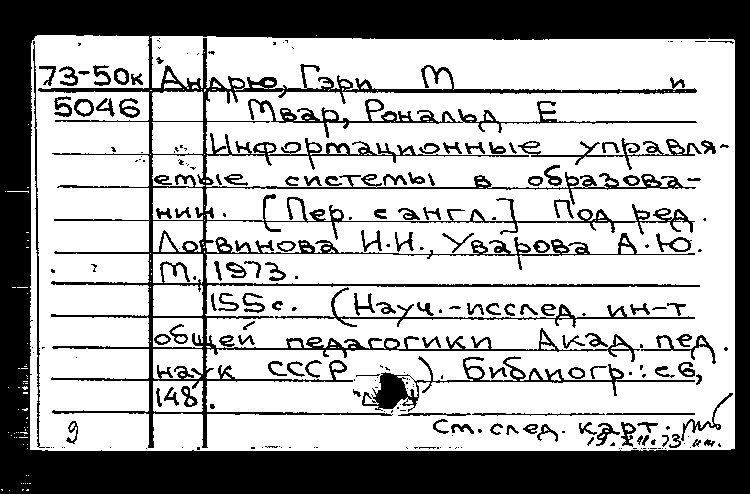 73-50к Андрю, Гэри М и
5046 Мвар, Рональд Е
Информационные управля-
емые системы в образова-
нии. [Пер. с англ.] Под ред.
Логвинова И.И., Уварова А.Ю.
М., 1973.
155 с. (Науч.-исслед. ин-т
общей педагогики Акад. пед.
наук СССР). Библиогр.: с. 6,
148.
9 см. след. карт.